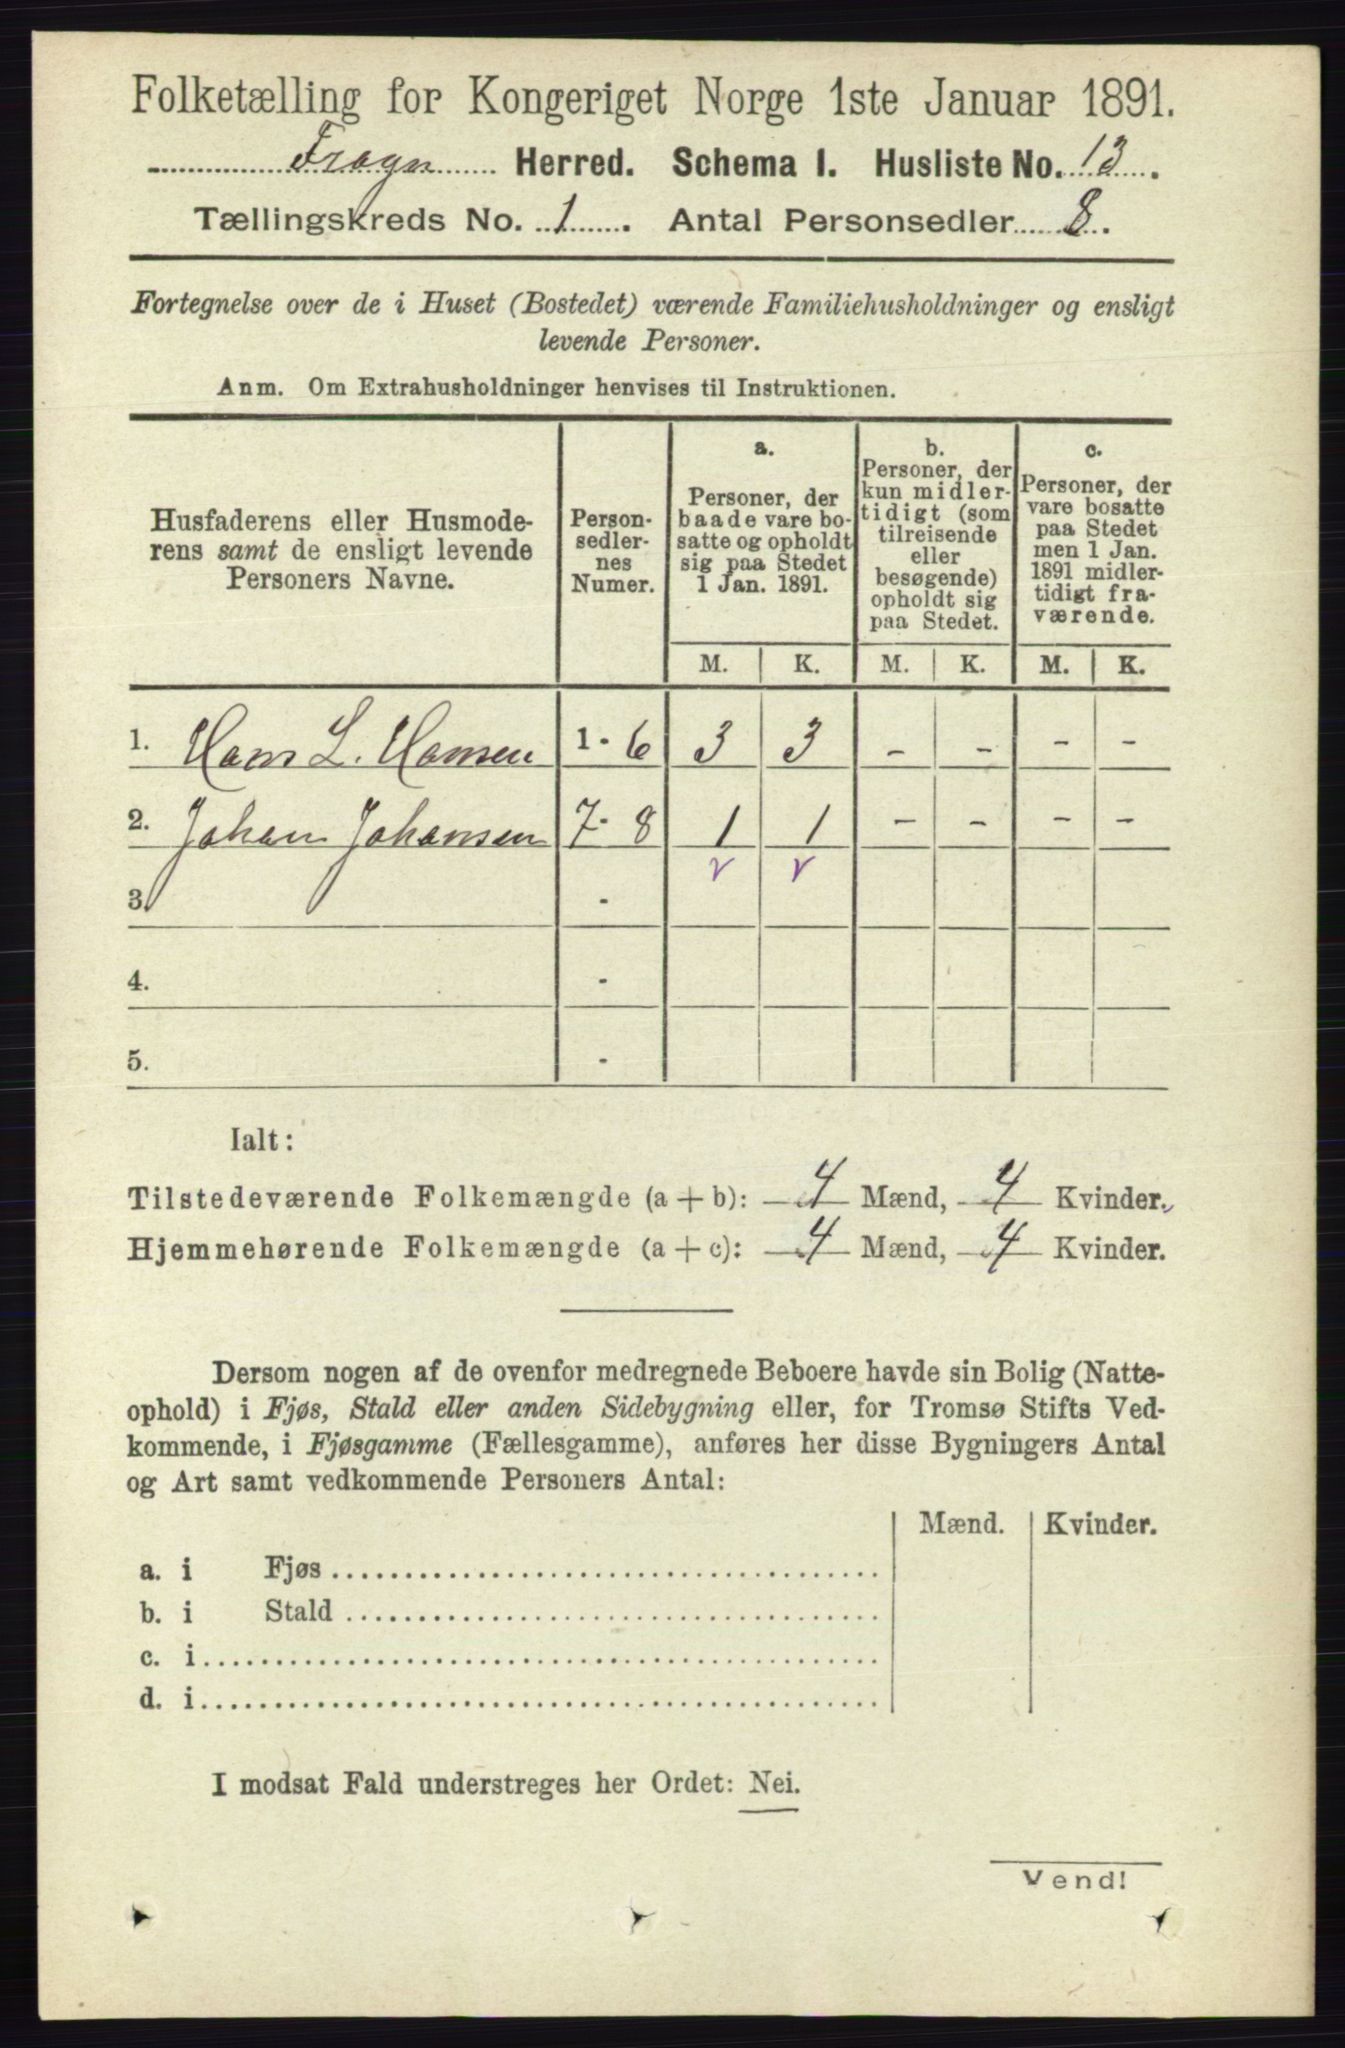 Folketælling for Kongeriget Norge 1ste Januar 1891.
Frogn Herred. Schema I. Husliste No. 13.
Tællingskreds No. 1. Antal Personsedler 8.
Fortegnelse over de i Huset (Bostedet) værende Familiehusholdninger og ensligt
levende Personer.
Anm. Om Extrahusholdninger henvises til Instruktionen.
Husfaderens eller Husmode-
rens samt de ensligt levende
Personers Navne.
Person-
sedler-
nes
Numer.
a.
Personer, der
baade vare bo-
satte og opholdt
sig paa Stedet
1 Jan. 1891.
b.
Personer, der
kun midler-
tidigt (som
tilreisende
eller
besøgende)
opholdt sig
paa Stedet.
c.
Personer, der
vare bosatte
paa Stedet
men 1 Jan.
1891 midler-
tidigt fra-
værende.
M. K. M. K. M. K.
1. Hans L. Hansen 1 - 6 3 3 - - - -
2. Johan Johansen 7 - 8 1 1 - - - -
3. -
4. -
5. -
Ialt:
Tilstedeværende Folkemængde (a + b): 4 Mænd, 4 Kvinder.
Hjemmehørende Folkemængde (a + c): 4 Mænd, 4 Kvinder.
Dersom nogen af de ovenfor medregnede Beboere havde sin Bolig (Natte-
ophold) i Fjøs, Stald eller anden Sidebygning eller, for Tromsø Stifts Ved-
kommende, i Fjøsgamme (Fællesgamme), anføres her disse Bygningers Antal
og Art samt vedkommende Personers Antal:
Mænd. Kvinder.
a. i Fjøs
b. i Stald
c. i
d. i
I modsat Fald understreges her Ordet: Nei.
Vend!